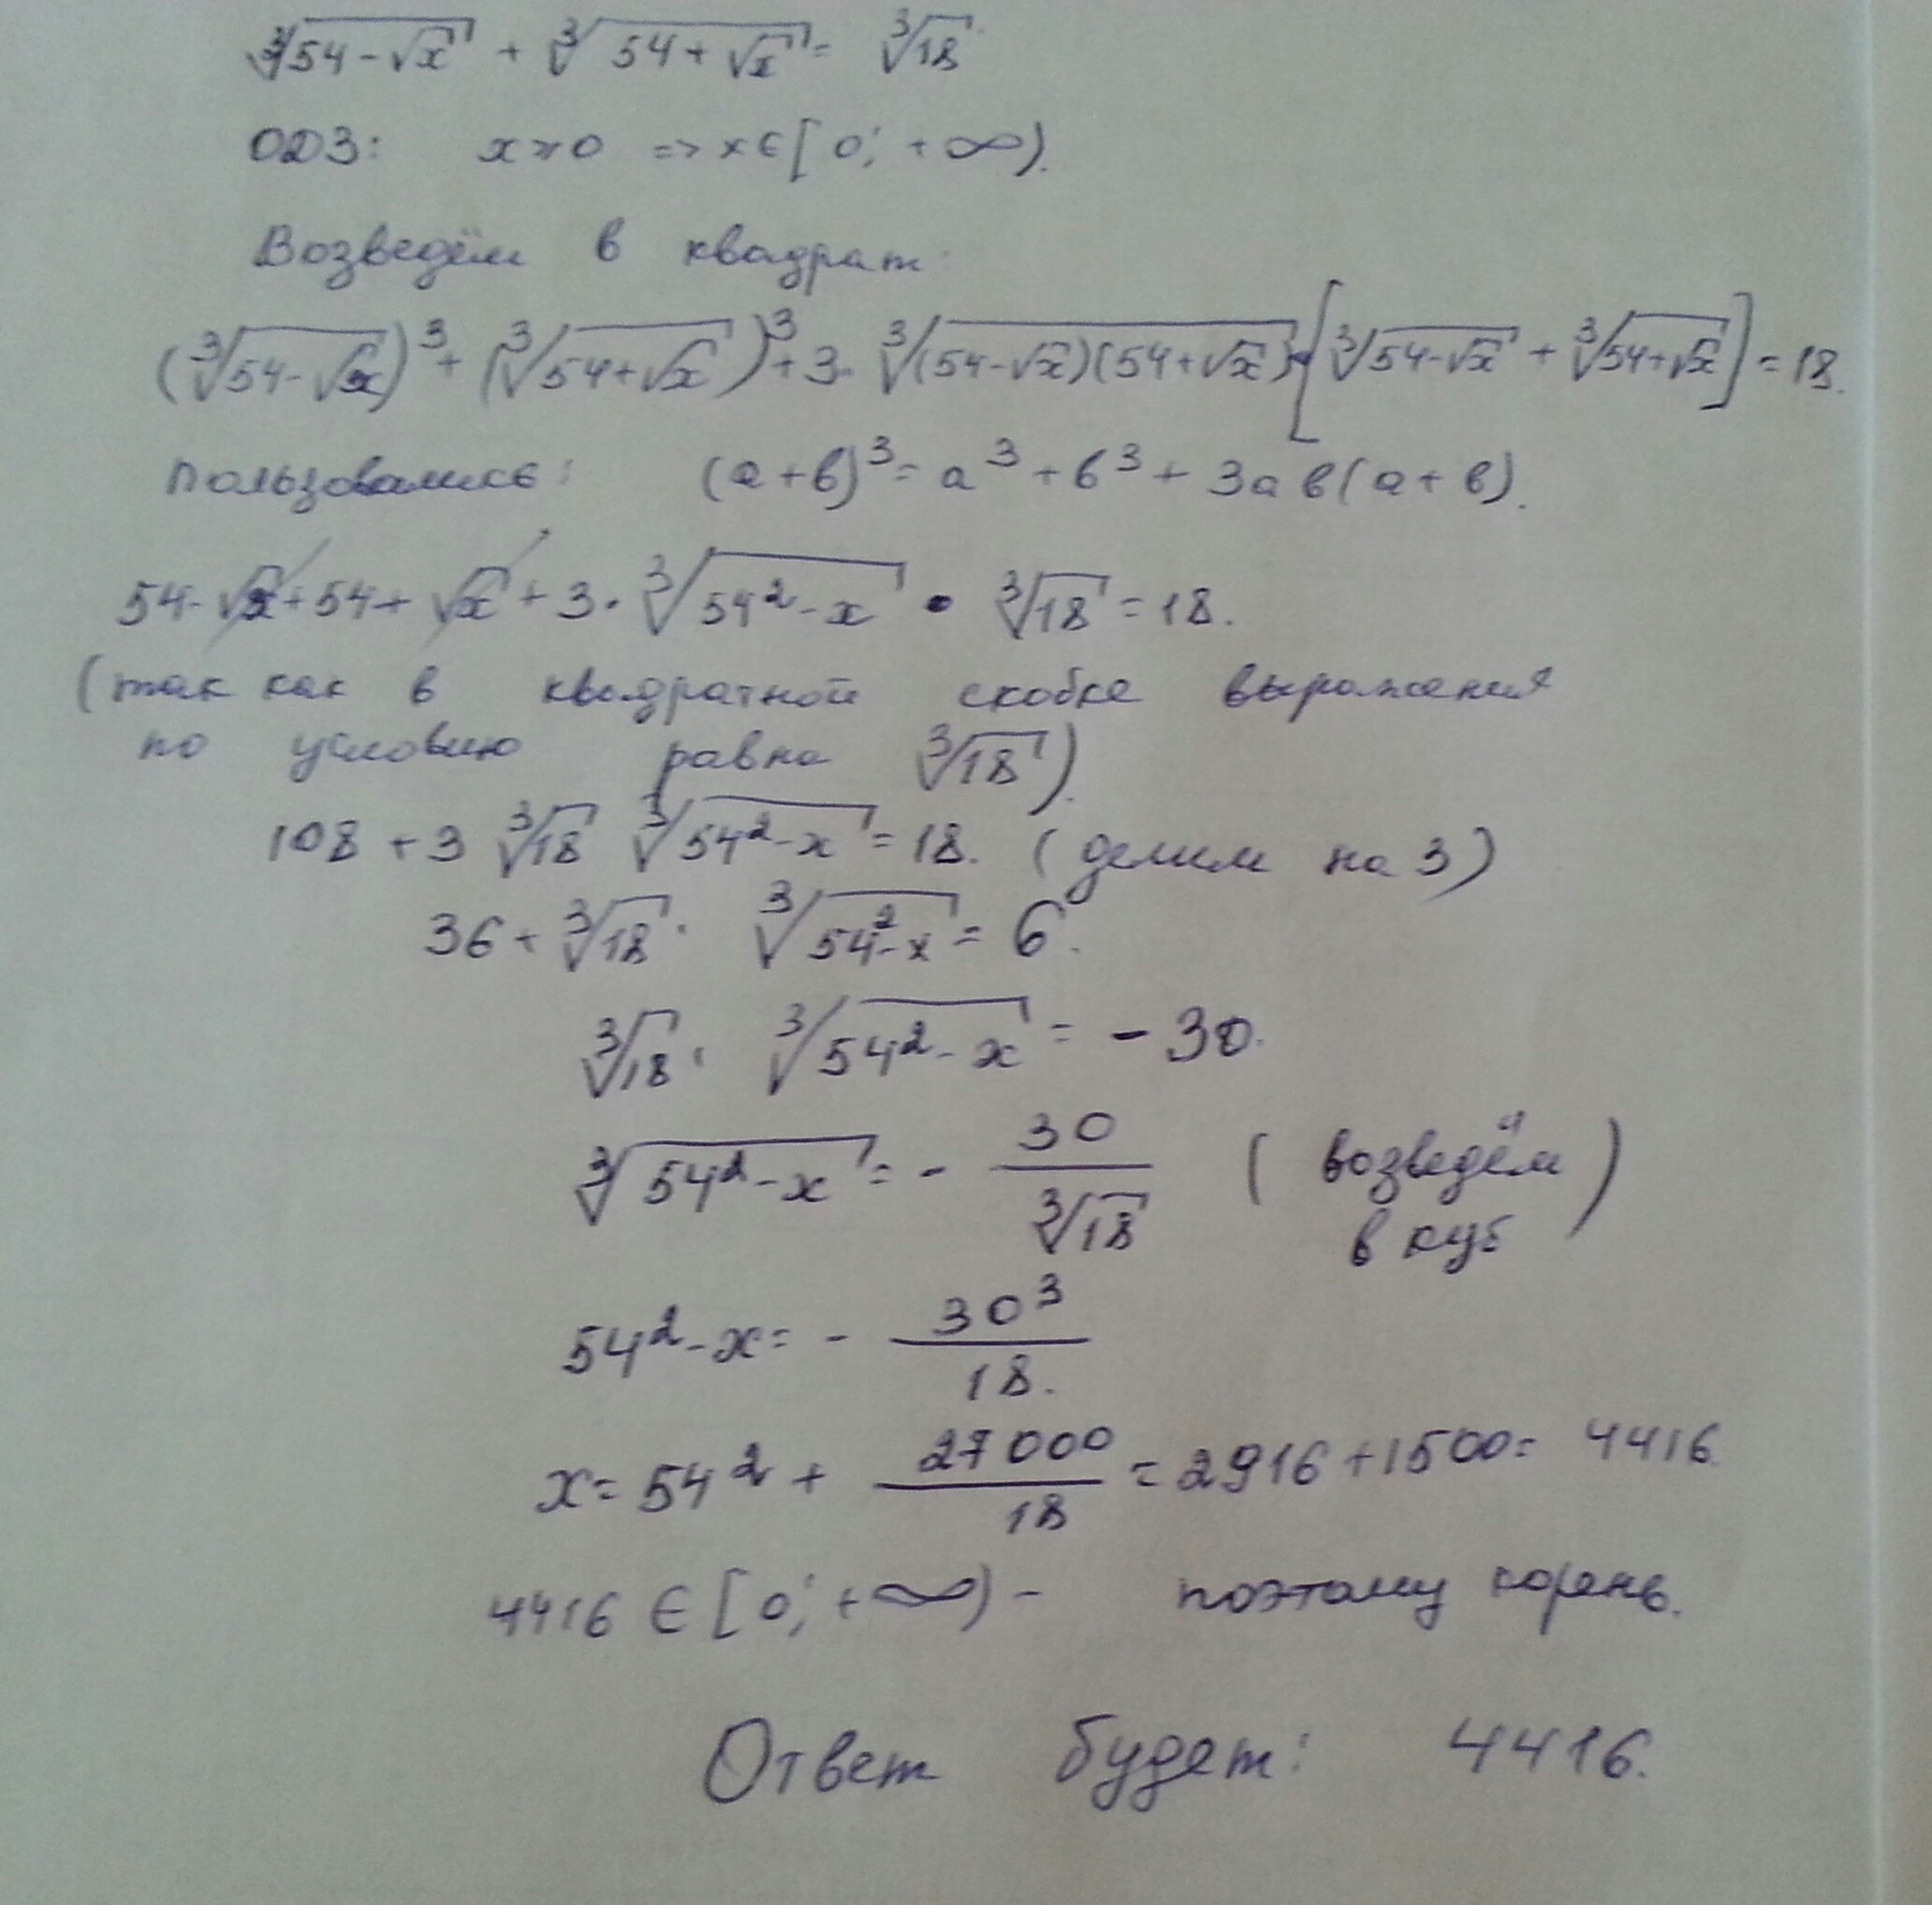 ∛(54-√x) + ∛(54+√x) = ∛18
ОДЗ: x≥0 => x∈[0; +∞).
Возведём в квадрат:
(∛(54-√x))³ + (∛(54+√x))³ + 3·∛((54-√x)(54+√x))·[∛(54-√x) + ∛(54+√x)] = 18.
Пользовались: (a+b)³ = a³ + b³ + 3ab(a+b).
54-√x+54+√x + 3·∛(54²-x) · ∛18 = 18.
(так как в квадратной скобке выражения
по условию равна ∛18).
108 + 3 ∛18 ∛(54²-x) = 18. (делим на 3)
36 + ∛18 · ∛(54²-x) = 6.
∛18 · ∛(54²-x) = -30.
∛(54²-x) = - 30/∛18 (возведём
в куб)
54²-x = - 30³/18.
x = 54² + 27000/18 = 2916+1500 = 4416.
4416 ∈ [0; +∞) - поэтому корень.
Ответ будет: 4416.